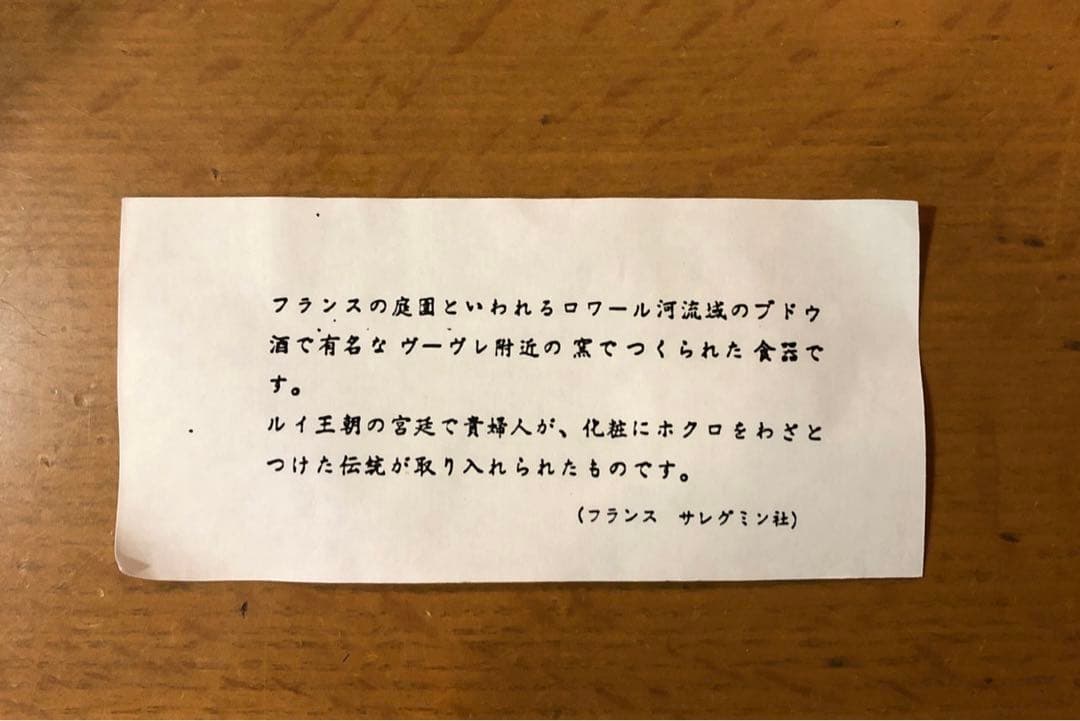 フランスの庭園といわれるロワール河流域のブドウ
酒で有名な ヴーヴレ附近の窯でつくられた食器で
す。
ルイ王朝の宮廷で貴婦人が、化粧にホクロをわざと
つけた伝統が取り入れられたものです。
(フランス　サレグミン社)